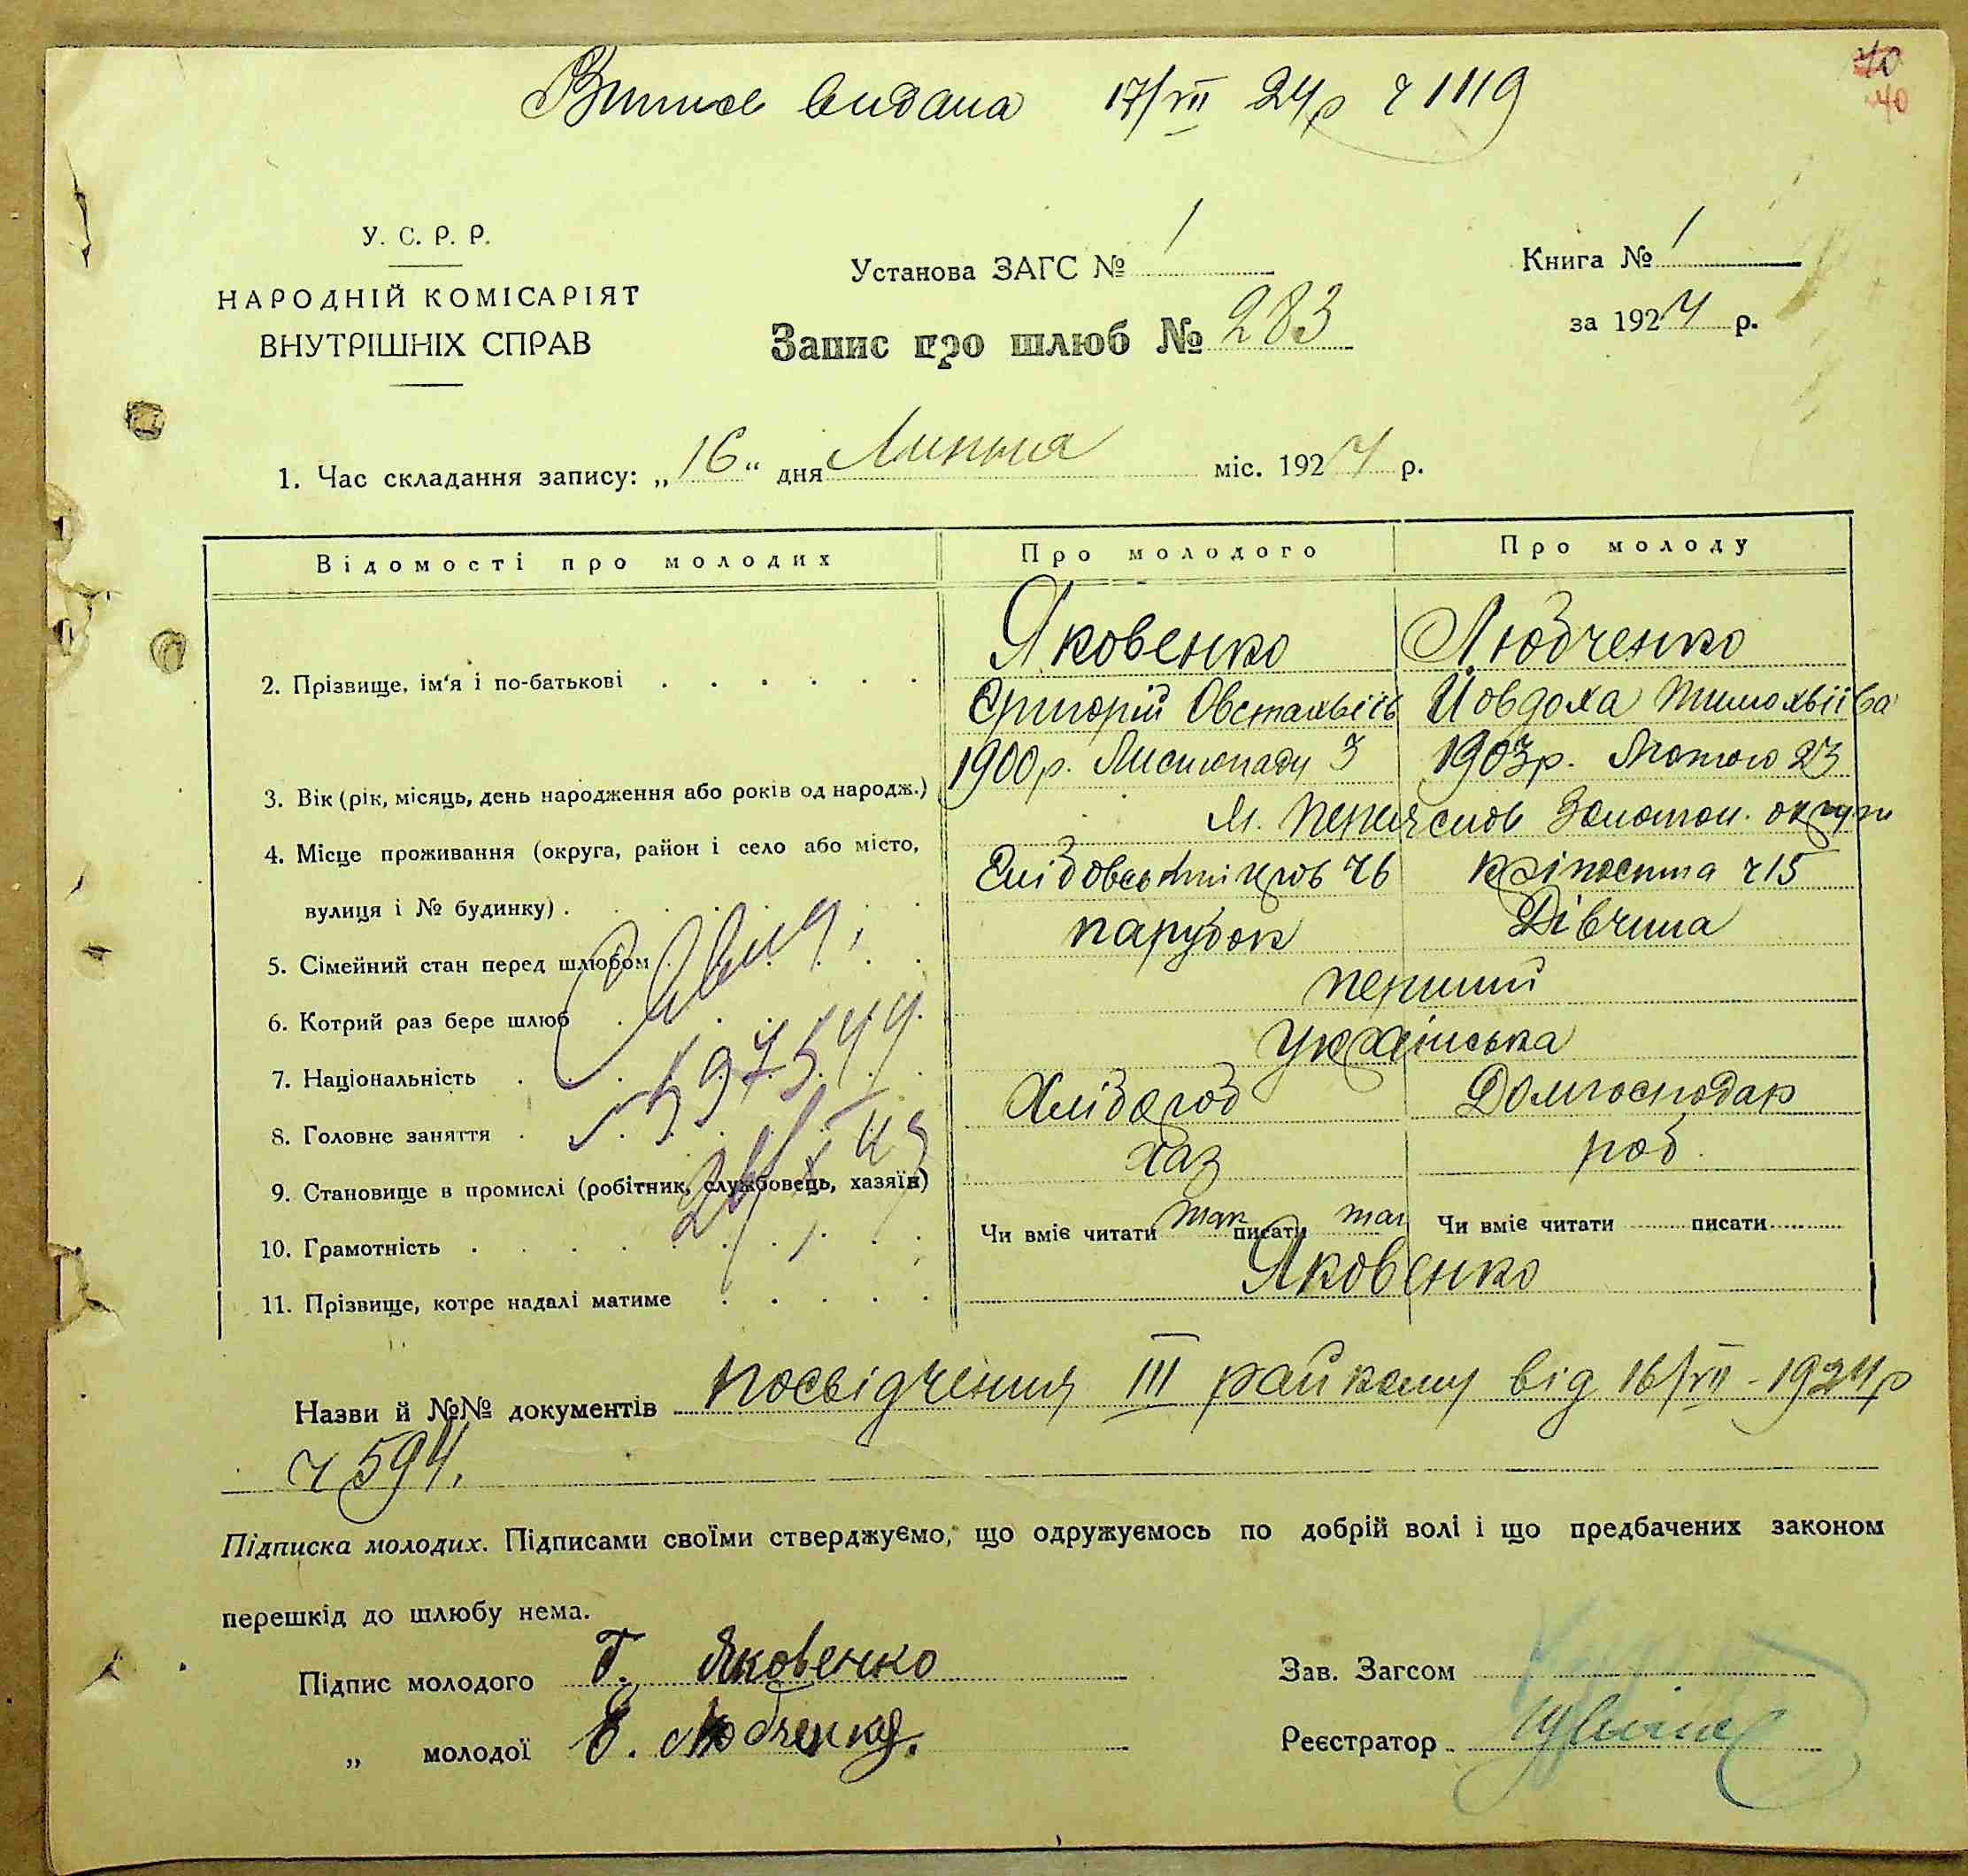 40
40
Витис видана 17/VII 24р ч 1119
У. С. Р. Р.
НАРОДНІЙ КОМІСАРІЯТ
ВНУТРІШНІХ СПРАВ
Установа ЗАГС № 1
Запис про шлюб № 283
Книга № 1
за 1924 р.
1. Час складання запису: „16" дня Липня міс. 1924 р.
Відомості про молодих Про молодого Про молоду
2. Прізвище, ім'я і по-батькові Яковенко Людченко
Григорій Овстахвіїв Йовдоха Тимохвіїва
3. Вік (рік, місяць, день народження або років од народж.) 1900р. Листопаду 3 1903р. Лютого 23
4. Місце проживання (округа, район і село або місто, м. Переяслов Золотон. округи
вулиця і № будинку) ч6 ч15
5. Сімейний стан перед шлюбом парубок Дівчина
6. Котрий раз бере шлюб перший
7. Національність Українська
8. Головне заняття Хлібороб Домгосподар
9. Становище в промислі (робітник, службовець, хазяїн) хаз роб.
10. Грамотність Чи вміє читати так писати так Чи вміє читати писати
11. Прізвище, котре надалі матиме Яковенко
Назви й №№ документів посвідчення III райкому від 16/VII - 1924р
ч 594.
Підписка молодих. Підписами своїми стверджуємо, що одружуємось по добрій волі і що предбачених законом
перешкід до шлюбу нема.
Підпис молодого Г. Яковенко
Зав. Загсом
„ молодої
Реєстратор